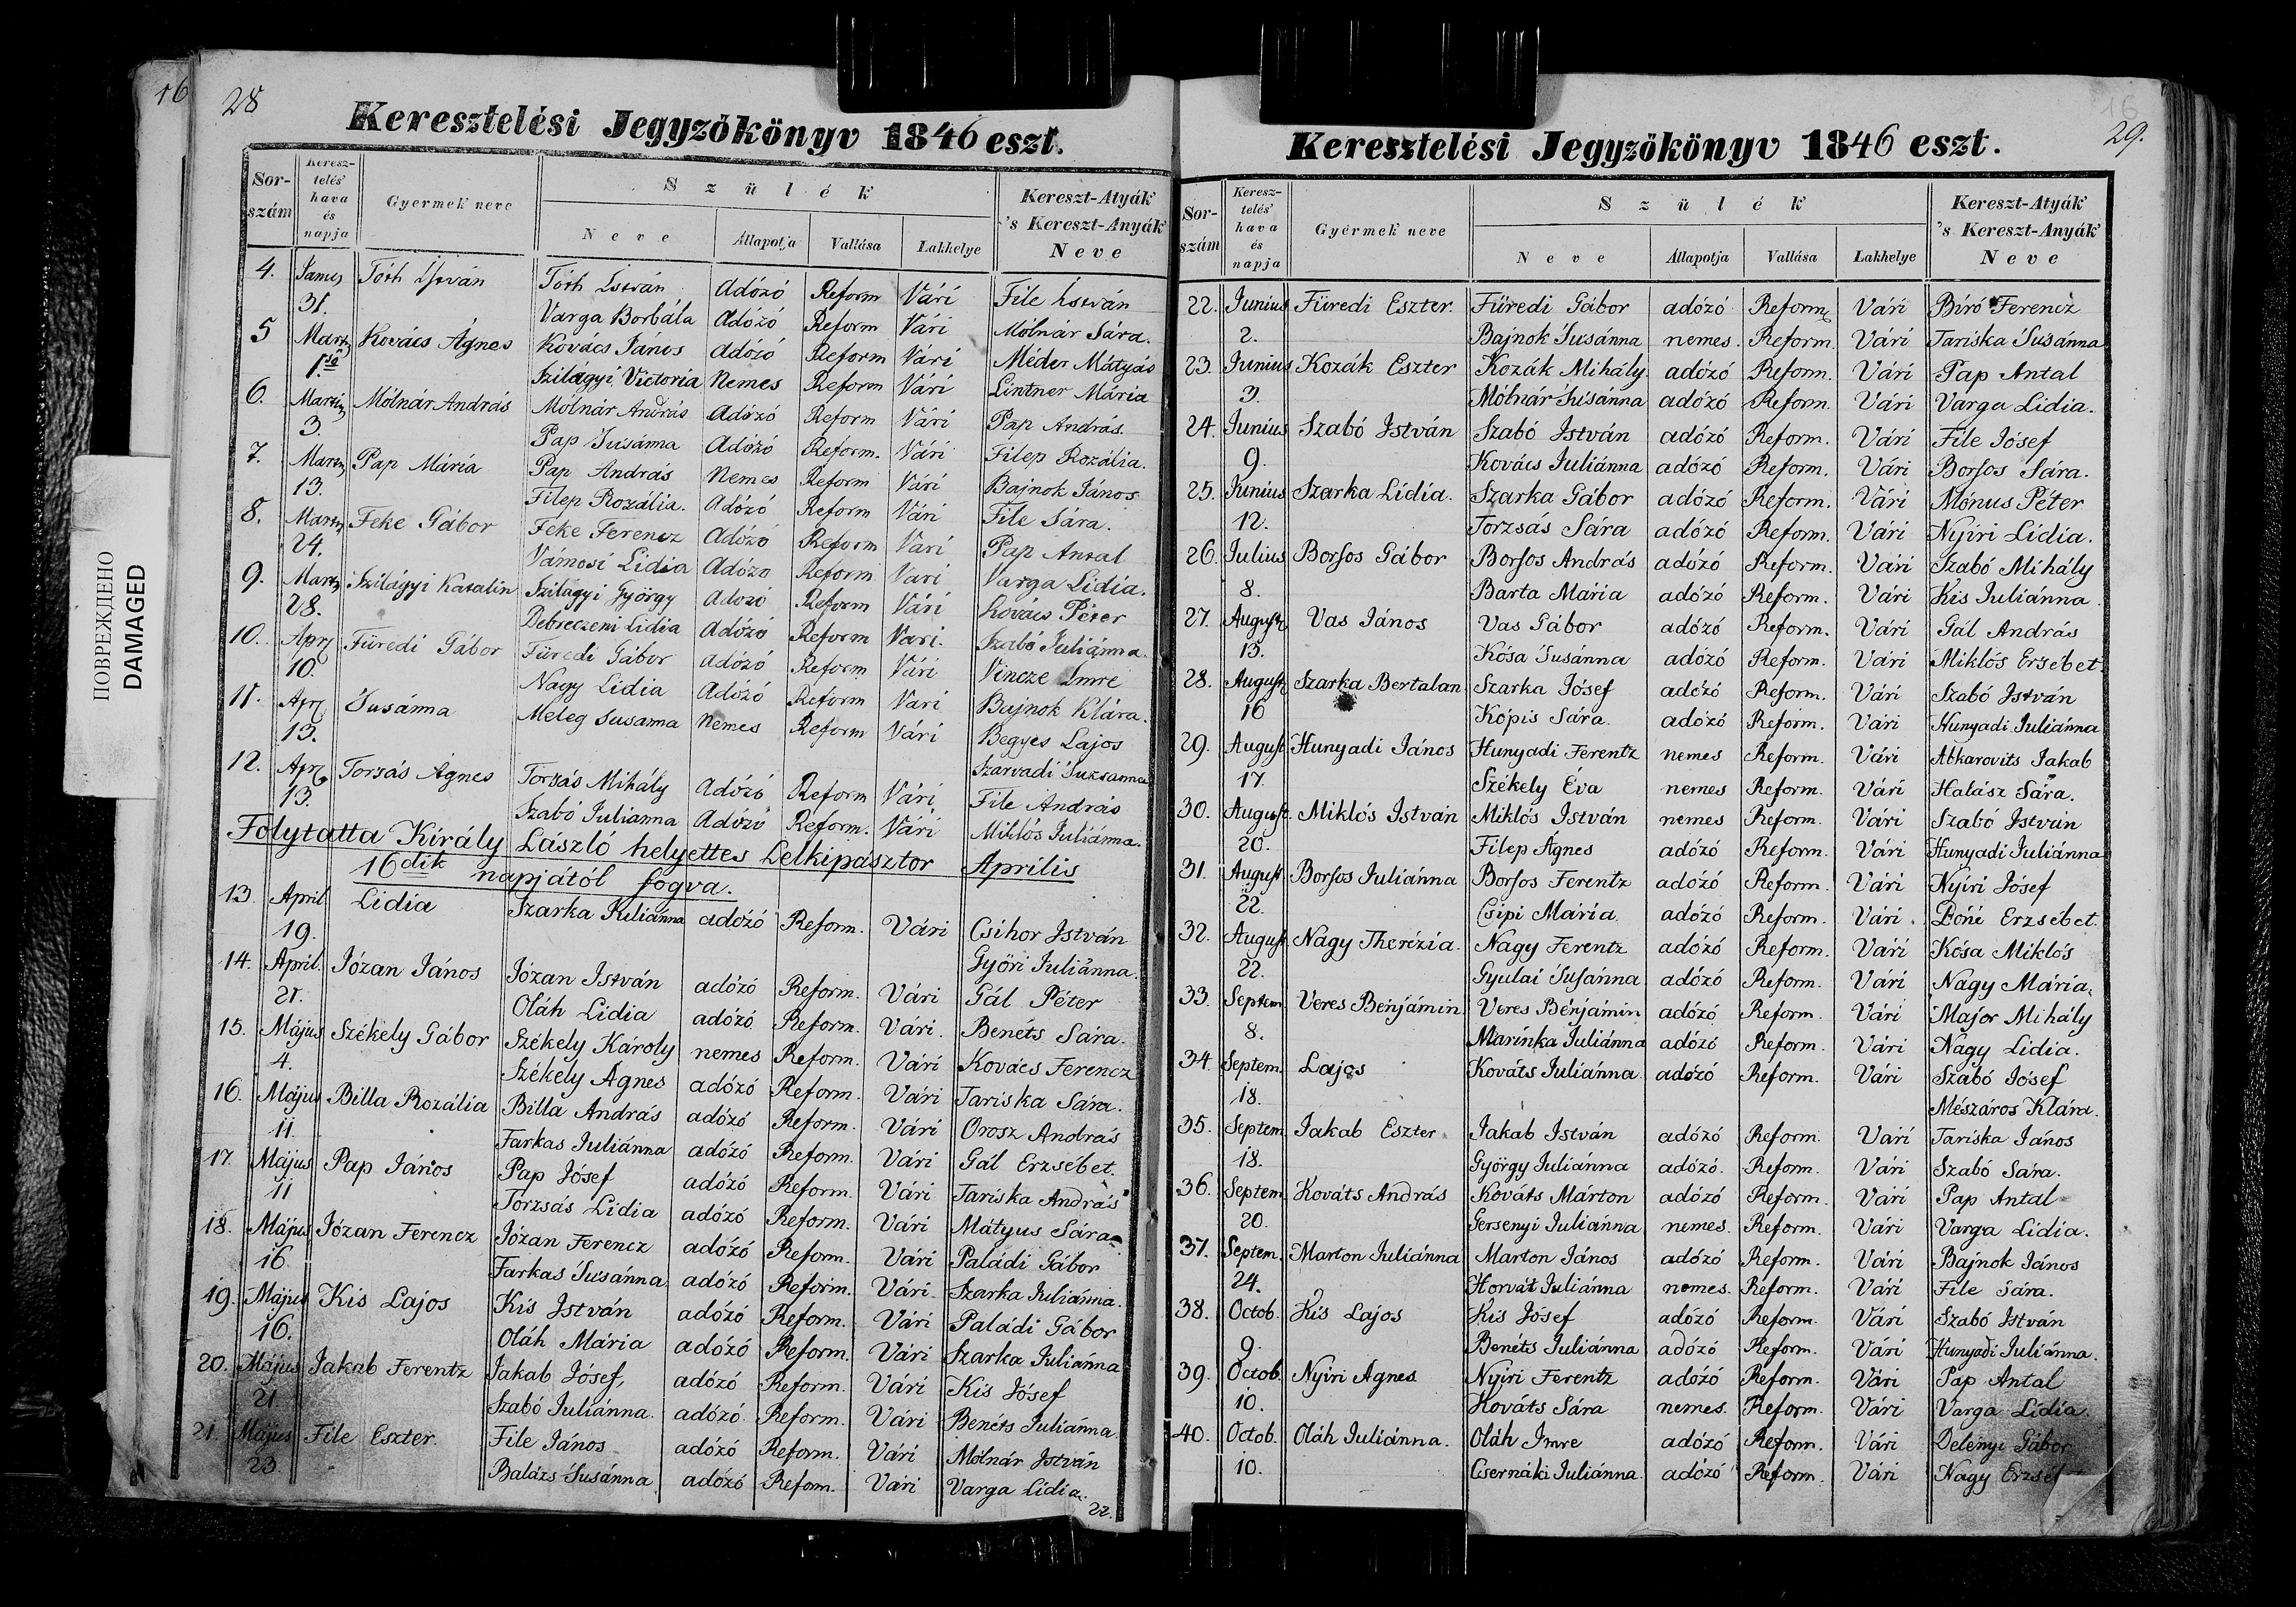 16
28
Keresztelési Jegyzökönyv 1846 eszt.
Sor-szám Keresz-telés' hava és napja Gyermek neve Szülék Neve Állapotja Vallása Lakhelye Kereszt-Atyák 's Kereszt-Anyák Neve
4. 31. Tóth István Tóth István Adózó Reform Vári File István
Varga Borbála Adózó Reform Vári Mólnár Sára.
5 1ső Kovács Ágnes Kovács János Adózó Reform Vári Méder Mátyás
Szilágyi Victoria Nemes Reform Vári Lintner Mária
6. 3. Mólnár András Mólnár András Adózó Reform Vári Pap András.
Pap Susánna Adózó Reform. Vári Filep Rozália.
7. 13. Pap Mária Pap András Nemes Reform Vári Bajnok János
Filep Rozália. Adózó Reform Vári File Sára.
8. 24. Feke Gábor Feke Ferencz Adózó Reform Vári Pap Antal
Vámosi Lidia Adózó Reform Vári Varga Lidia.
9. 28. Szilágyi Katalin Szilágyi György Adózó Reform Vári Kovács Péter
Debreczeni Lidia Adózó Reform Vári. Szabó Juliánna.
10. 10. Füredi Gábor Füredi Gábor Adózó Reform Vári Vincze Imre
Nagy Lidia Adózó Reform Vári Bajnok Klára.
11. 13. Susánna Meleg Susanna Nemes Reform Vári Begyes Lajos
Szarvadi Suzsanna
12. 13. Torsás Ágnes Torsás Mihály Adózó Reform Vári File András
Szabó Julianna Adózó Reform. Vári Miklós Juliánna.
Folytatta Király László helyettes Lelkipásztor Április
16dik napjától fogva.
13. April 19. Lidia Szarka Juliánna adózó Reform. Vári Csihor István
Györi Juliánna.
14. April. 21. Józan János Józan István adózó Reform. Vári Gál Péter
Oláh Lidia adózó Reform. Vári. Benéts Sára.
15. Május 4. Székely Gábor Székely Károly nemes Reform. Vári Kovács Ferencz
Székely Agnes adózó Reform. Vári Tariska Sára.
16. Május 11. Billa Rozália Billa András adózó Reform. Vári Orosz András
Farkas Juliánna adózó Reform. Vári Gál Erzsébet.
17. Május 11 Pap János Pap Jósef adózó Reform. Vári Tariska András
Torzsás Lidia adózó Reform. Vári Mátyus Sára
18. Május 16 Józan Ferencz Józan Ferencz adózó Reform. Vári Paládi Gábor
Farkas Susánna adózó Reform. Vári. Szarka Juliánna.
19. Május 16. Kis Lajos Kis István adózó Reform. Vári Paládi Gábor
Oláh Mária adózó Reform. Vári Szarka Juliánna
20. Május 21. Jakab Ferentz Jakab Jósef, adózó Reform. Vári Kis Jósef
Szabó Juliánna. adózó. Reform. Vári Benéts Juliánna.
21. Május 23. File Eszter. File János adózó Reform. Vári Mólnár István
Balázs Susánna adózó Reform. Vári Varga Lidia.
22.
ПОВРЕЖДЕНО
DAMAGED
16
29.
Keresztelési Jegyzökönyv 1846 eszt.
Sor-szám Keresz-telés' hava és napja Gyermek neve Szülék Neve Állapotja Vallása Lakhelye Kereszt-Atyák 's Kereszt-Anyák Neve
22. Junius 2. Füredi Eszter. Füredi Gábor adózó Reform. Vári Bíró Ferencz
Bajnok Susánna nemes. Reform. Vári Tariska Susánna
23. Junius 3. Kozák Eszter Kozák Mihály. adózó Reform. Vári Pap Antal
Mólnár Susánna adózó Reform. Vári Varga Lidia.
24. Junius 9. Szabó István Szabó István adózó Reform. Vári File Jósef
Kovács Juliánna adózó Reform. Vári Borsos Sára.
25. Junius 12. Szarka Lidia. Szarka Gábor adózó Reform. Vári Mónus Péter
Torzsás Sára adózó Reform. Vári Nyíri Lidia.
26. Julius 8. Borsos Gábor Borsos András adózó Reform. Vári Szabó Mihály
Barta Mária adózó Reform. Vári Kis Juliánna
27. August. 13. Vas János Vas Gábor adózó Reform. Vári Gál András
Kósa Susánna adózó Reform. Vári Miklós Ersébet
28. August 16 Szarka Bertalan Szarka Jósef adózó Reform. Vári Szabó István
Kópis Sára. adózó Reform. Vári Hunyadi Juliánna
29. August. 17. Hunyadi János Hunyadi Ferentz nemes Reform. Vári Abkarovits Jakab
Székely Éva nemes Reform. Vári Halász Sára.
30. August. 20. Miklós István Miklós István nemes Reform. Vári Szabó István
Filep Ágnes adózó Reform. Vári Hunyadi Juliánna
31. August 22. Borsos Juliánna Borsos Ferentz adózó Reform. Vári Nyíri Jósef
Csipi Mária. adózó Reform. Vári. Erzsébet.
32. August 22. Nagy Therézia. Nagy Ferentz adózó Reform. Vári Kósa Miklós
Gyulai Susánna adózó Reform. Vári Nagy Mária.
33. Septem. 8. Veres Benjámin Veres Bénjámin adózó Reform. Vári Major Mihály
Marinka Juliánna adózó Reform. Vári Nagy Lidia.
34. Septem. 18. Lajos Kováts Juliánna. adózó Reform. Vári Szabó Jósef
Mészáros Klára.
35. Septem 18. Jakab Eszter Jakab István adózó Reform. Vári Tariska János
György Juliánna adózó. Reform. Vári Szabó Sára.
36. Septem. 20. Kováts András Kováts Márton adózó Reform. Vári Pap Antal
Gersenyi Juliánna nemes. Reform. Vári Varga Lidia.
37. Septem. 24. Marton Juliánna Marton János adózó Reform. Vári Bajnok János
Horvát Juliánna nemes. Reform. Vári File Sára.
38. Octob. 9. Kis Lajos Kis Jósef adózó Reform. Vári Szabó István
Benéts Juliánna adózó Reform. Vári Hunyadi Juliánna.
39. Octob. 10. Nyiri Ágnes Nyiri Ferentz adózó Reform. Vári Pap Antal
Kováts Sára nemes. Reform. Vári Varga Lidia.
40. Octob. 10. Oláh Juliánna. Oláh Imre adózó Reform. Vári Delényi Gábor
Csernáki Juliánna. adózó Reform. Vári Nagy